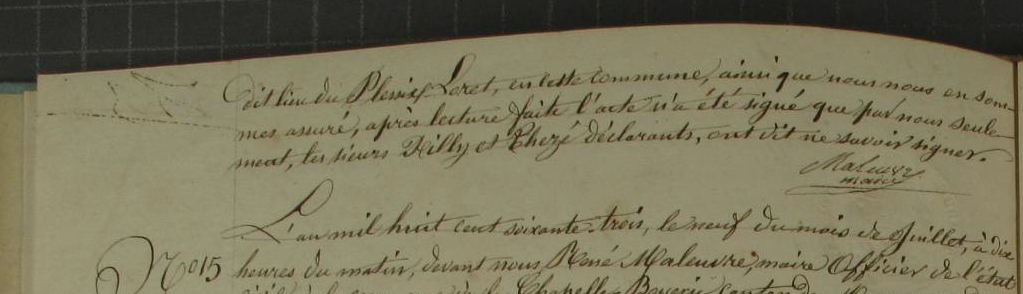 dit lieu du Plessix Loret, en cette commune, ainsi que nous nous en som-
mes assuré, après lecture faite l'acte n'a été signé que par nous seule-
ment, les sieurs Hilly et Thezé déclarants, ont dit ne savoir signer.
Maleuvre
maire
L'an mil huit cent soixante-trois, le neuf du mois de Juillet, à dix
N° 15
heures du matin, devant nous René Maleuvre, maire Officier de l'état
Chapelle Bouexic canton de